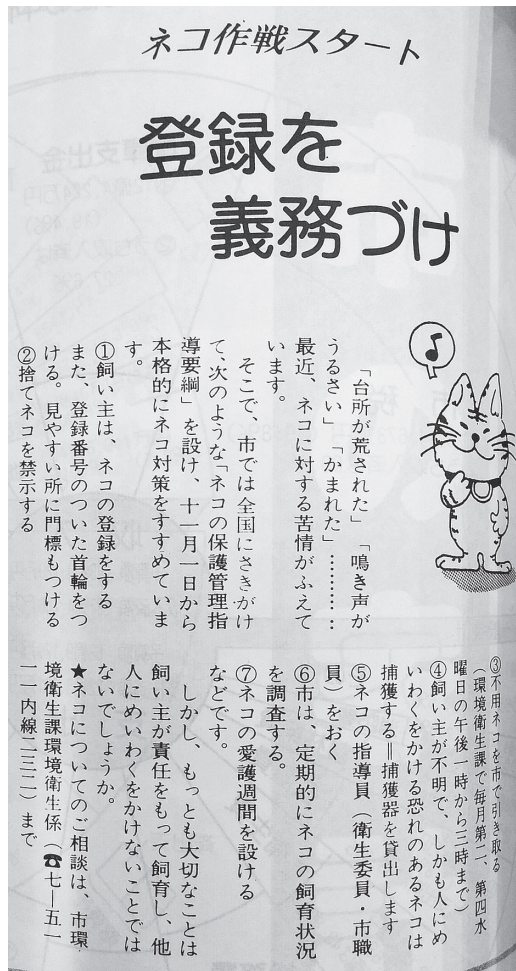 ネコ作戦スタート
登録を
義務づけ
「台所が荒された」「鳴き声が
うるさい」「かまれた」…………
最近、ネコに対する苦情がふえて
います。
そこで、市では全国にさきがけ
て、次のような「ネコの保護管理指
導要綱」を設け、十一月一日から
本格的にネコ対策をすすめていま
す。
①飼い主は、ネコの登録をする
また、登録番号のついた首輪をつ
ける。見やすい所に門標もつける
②捨てネコを禁示する
③不用ネコを市で引き取る
(環境衛生課で毎月第二、第四水
曜日の午後一時から三時まで)
④飼い主が不明で、しかも人にめ
いわくをかける恐れのあるネコは
捕獲する＝捕獲器を貸出します
⑤ネコの指導員(衛生委員・市職
員)をおく
⑥市は、定期的にネコの飼育状況
を調査する。
⑦ネコの愛護週間を設ける
などです。
しかし、もっとも大切なことは
飼い主が責任をもって飼育し、他
人にめいわくをかけないことでは
ないでしょうか。
★ネコについてのご相談は、市環
境衛生課環境衛生係(☎七―五一
一一内線二三二)まで